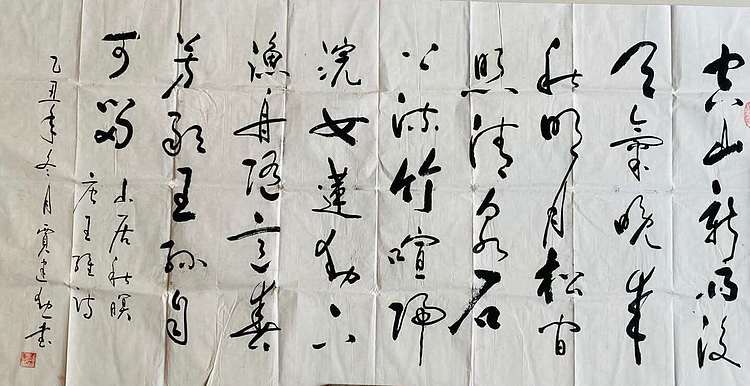 空山新雨後
天氣晚來
秋明月松間
照清泉石
上流竹喧歸
浣女蓮動下
漁舟隨意春
芳歇王孫自
可留
山居秋暝
唐王維詩
乙丑年冬月賈建書